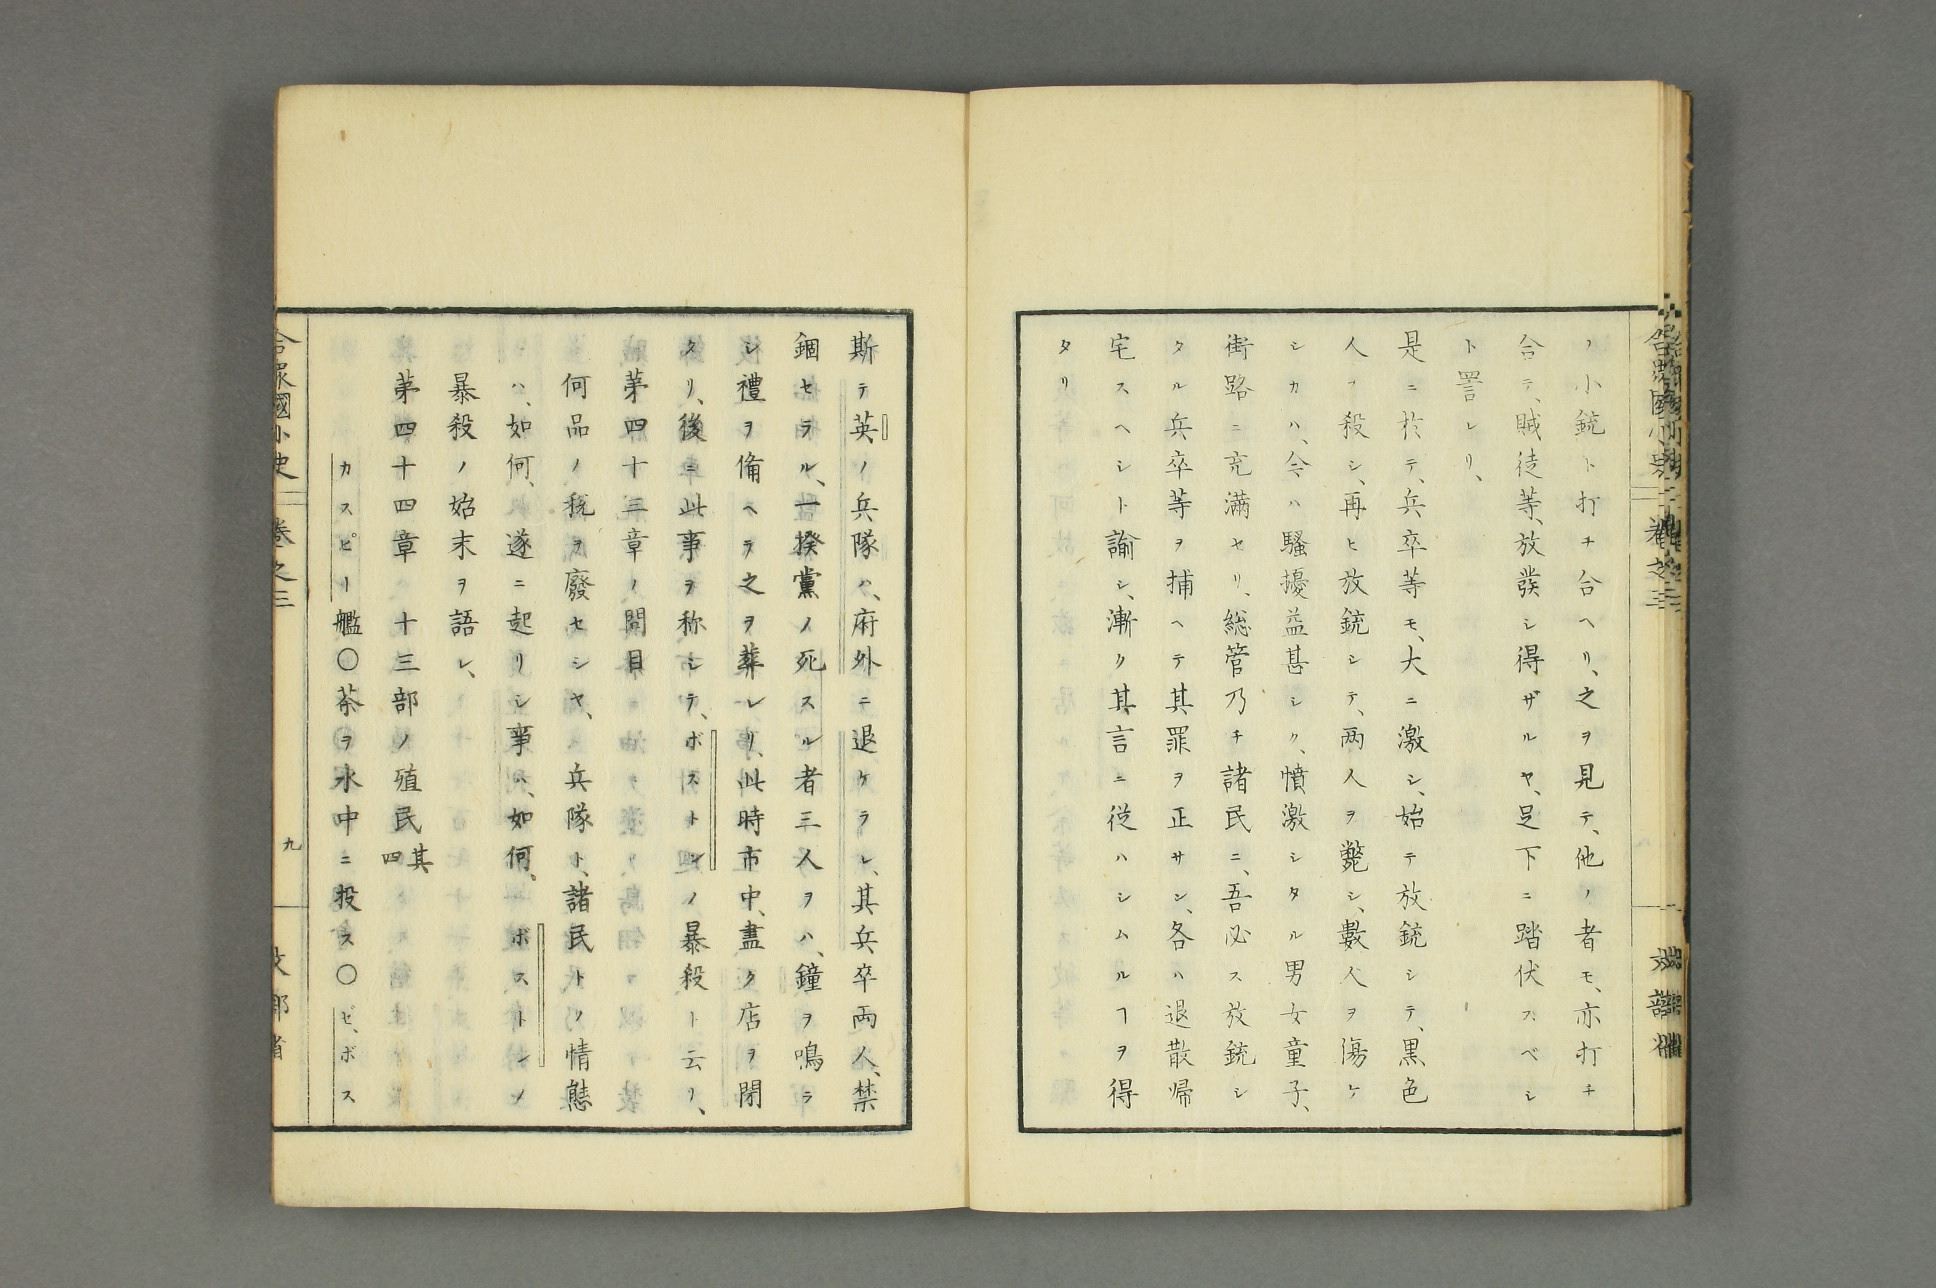 ノ小銃ト打チ合ヘリ、之ヲ見テ、他ノ者モ、亦打チ
合テ、賊徒等、放發シ得ザルヤ、足下ニ踏伏スベシ
ト詈レリ、
是ニ於テ、兵卒等モ、大ニ激シ、始テ放銃シテ、黒色
人ヲ殺シ、再ヒ放銃シテ、両人ヲ斃シ、數人ヲ傷ケ
シカハ、今ハ騒擾益甚シク、憤激シタル男女童子、
街路ニ充滿セリ、総管乃チ諸民ニ、吾必ス放銃シ
タル兵卒等ヲ捕ヘテ其罪ヲ正サン、各ハ退散帰
宅スヘシト諭シ、漸ク其言ニ従ハシムルヿヲ得
タリ
斯テ英ノ兵隊ハ、府外ニ退ケラレ、其兵卒両人、禁
錮セラル、一揆黨ノ死スル者三人ヲハ、鐘ヲ鳴ラ
シ禮ヲ備ヘテ之ヲ葬レリ、此時市中、盡ク店ヲ閉
タリ、後ニ此事ヲ称シテ、ボストンノ暴殺ト云リ、
苐四十三章ノ問目
何品ノ税ヲ廢セシヤ、兵隊ト、諸民トノ情態
ハ、如何、遂ニ起リシ事ハ、如何、ボストンノ
暴殺ノ始末ヲ語レ、
苐四十四章 十三部ノ殖民其四
カスピー艦〇茶ヲ水中ニ投ス〇ビ、ボス
合衆國小史 巻之三 九 文部省